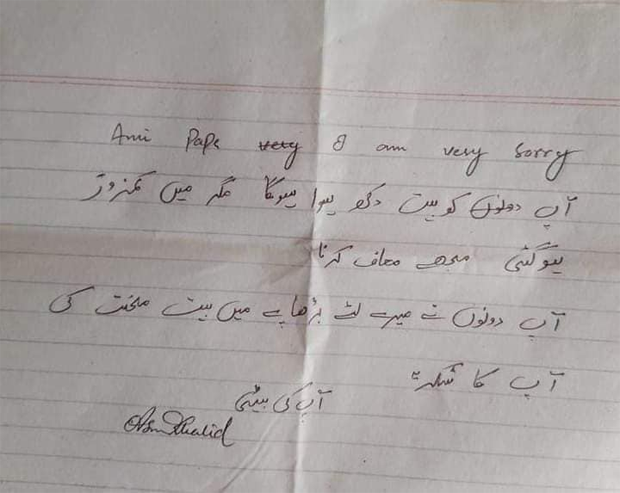 Ami Papa very I am very sorry
آپ دونوں کو بہت دکھ ہوا ہوگا مگر میں کمزور
ہوگئی مجھے معاف کرنا
آپ دونوں نے میرے لئے بڑھاپے میں بہت محنت کی
آپ کا شکریہ
آپ کی بیٹی
Khalid